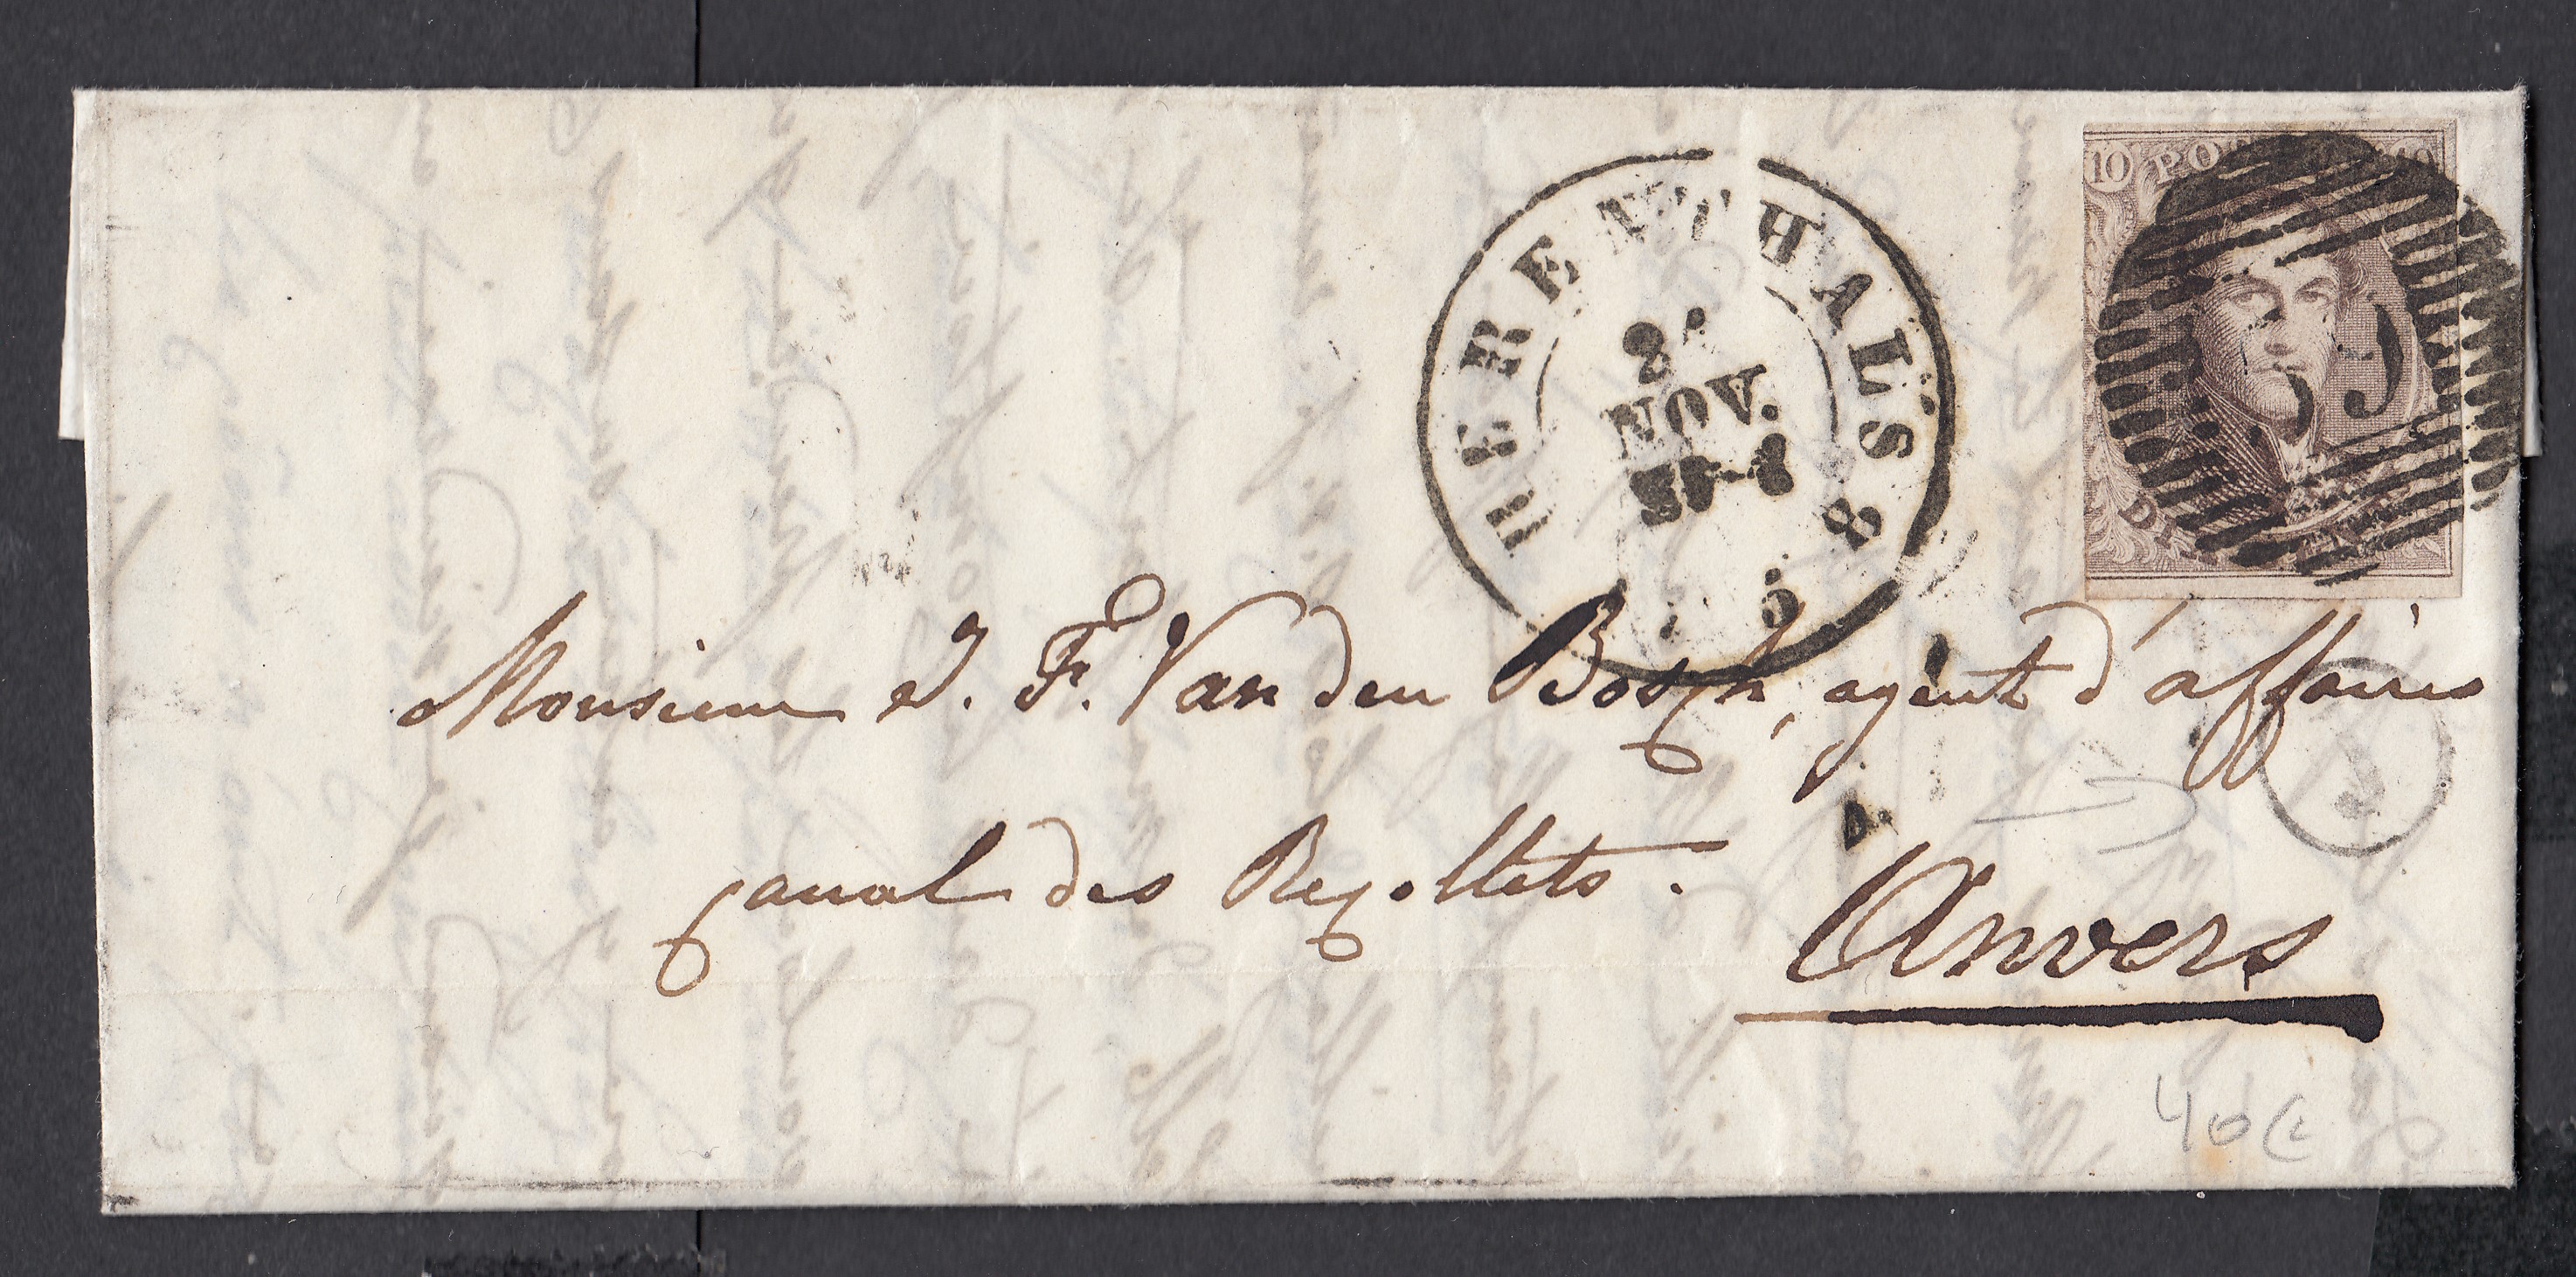 10 PO 10
HEERENTHALS
2
NOV.
8
5
Monsieur J. F. Van den Bosch, agent d'affaires
Canal des Recollets.
Anvers
40c